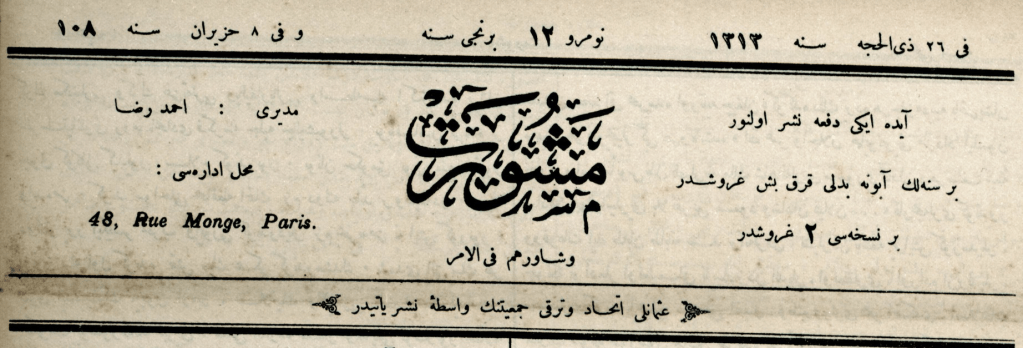 فی ٢٦ ذی الحجه سنه ١٣١٣ نومرو ١٢ برنجی سنه و فی ٨ حزیران سنه ١٠٨
آیده ایکی دفعه نشر اولنور
بر سنه‌لك آبونه بدلی قرق بش غروشدر
بر نسخه‌سی ٢ غروشدر
مشورت
و شاورهم فی الامر
مدیری : احمد رضا
محل اداره‌سی :
48, Rue Monge, Paris.
عثمانلی اتحاد و ترقی جمعیتنك واسطهٔ نشریاتیدر